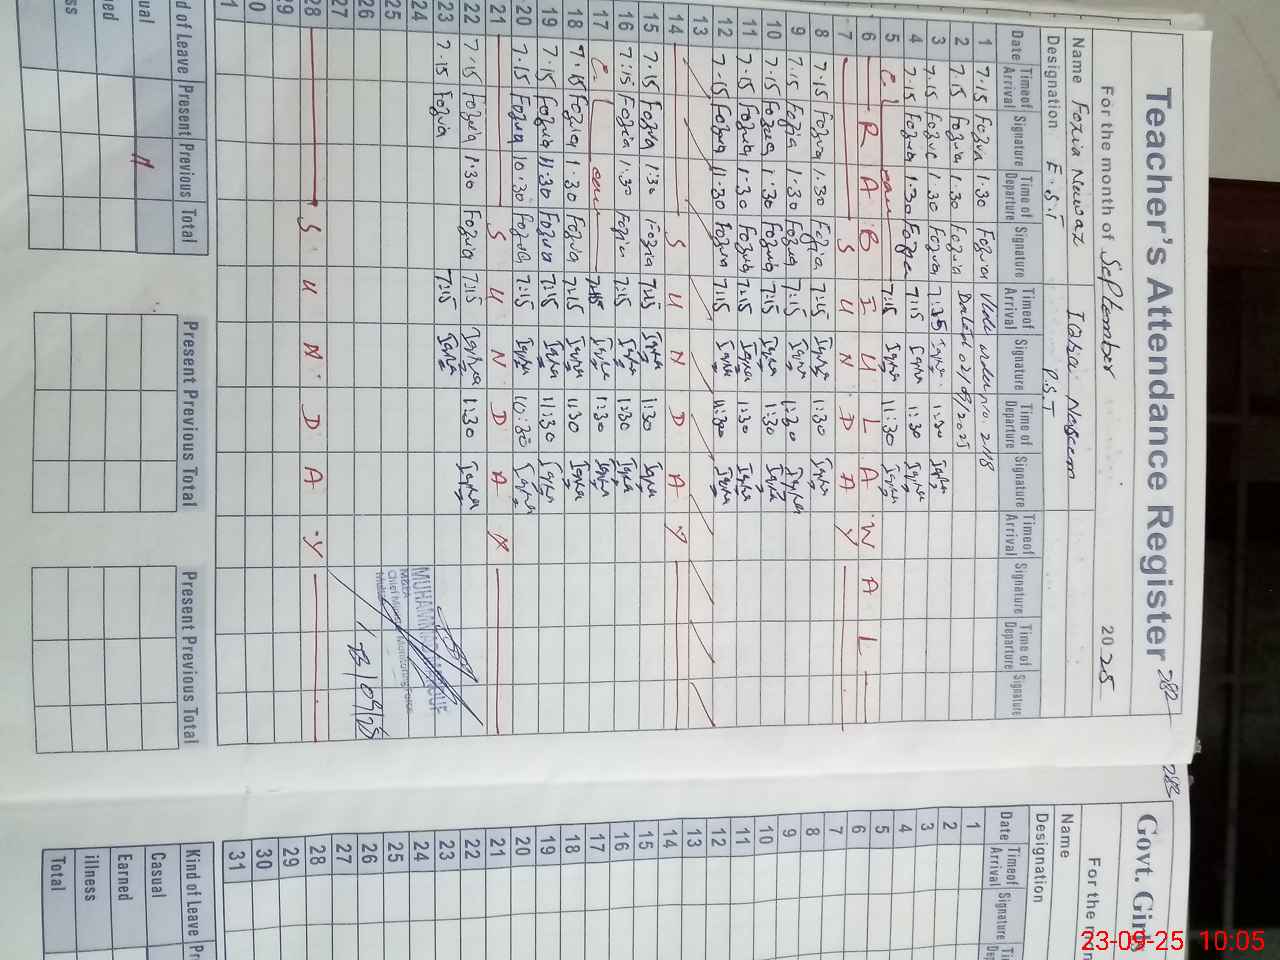 Teacher's Attendance Register 282
For the month of September 2025
Name Fozia Nawaz Iqra Naseem
Designation E.S.T P.S.T
Date Time of Arrival Signature Time of Departure Signature Time of Arrival Signature Time of Departure Signature Time of Arrival Signature Time of Departure Signature
1 7.15 Fozia 1.30 Fozia Vide order no. 2118
2 7.15 Fozia 1.30 Fozia Dated 02/09/2025
3 7.15 Fozia 1.30 Fozia 7:15 Iqra 1:30 Iqra
4 7.15 Fozia 1.30 Fozia 7:15 Iqra 1:30 Iqra
5 C.L 7:15 Iqra 11:30 Iqra
6 R A B I U L A W A L
7 S U N D A Y
8 7.15 Fozia 1.30 Fozia 7:15 Iqra 1:30 Iqra
9 7.15 Fozia 1.30 Fozia 7:15 Iqra 1:30 Iqra
10 7.15 Fozia 1.30 Fozia 7:15 Iqra 1:30 Iqra
11 7.15 Fozia 1.30 Fozia 7:15 Iqra 1:30 Iqra
12 7.15 Fozia 11.30 Fozia 7:15 Iqra 11:30 Iqra
13
14 S U N D A Y
15 7.15 Fozia 1:30 Fozia 7:15 Iqra 1:30 Iqra
16 7.15 Fozia 1.30 Fozia 7:15 Iqra 1:30 Iqra
17 C.L 7:15 Iqra 1:30 Iqra
18 7.15 Fozia 1.30 Fozia 7:15 Iqra 1:30 Iqra
19 7.15 Fozia 11:30 Fozia 7:15 Iqra 11:30 Iqra
20 7.15 Fozia 10.30 Fozia 7:15 Iqra 10:30 Iqra
21 S U N D A Y
22 7.15 Fozia 1.30 Fozia 7:15 Iqra 1:30 Iqra
23 7.15 Fozia 7:15 Iqra
24
25
26 23/09/25
27
28 S U N D A Y
29
Present Previous Total Present Previous Total Present Previous Total
283
Govt. Girls
For the
Name
Designation
Date Time of Arrival Signature
1
2
3
4
5
6
7
8
9
10
11
12
13
14
15
16
17
18
19
20
21
22
23
24
25
26
27
28
29
30
31
Kind of Leave
Casual
Earned
illness
Total
23-09-25 10:05